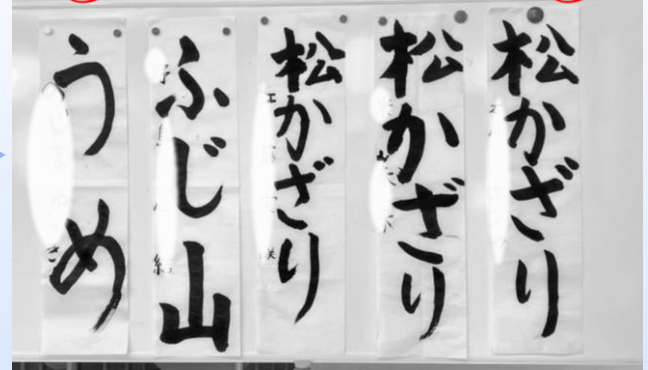 松かざり
松かざり
松かざり
ふじ山
うめ